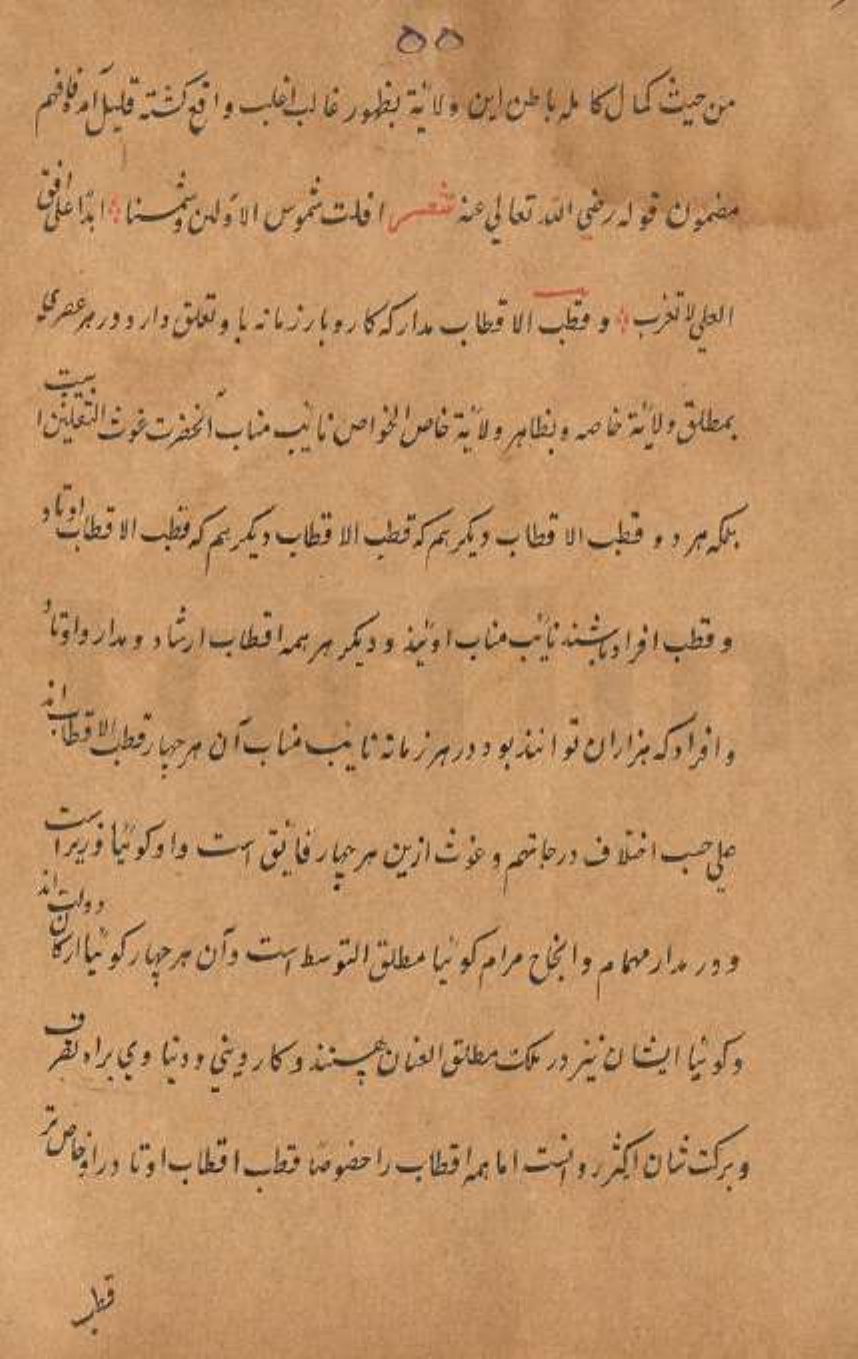 ۵۵
من حیث کمال کامله باطن این ولایة بظهور غالب اغلب واقع کشته قلیل آمد فافهم
مضمون قوله رضي الله تعالي عنه شعر افلت شموس الاولین وشمسنا ابدًا علی افق
العلي لا تغرب و قطب الاقطاب مدار که کاروبار زمانه باو تعلق دارد و در هر عصری
بمطلق ولایة خاصه و بظاهر ولایة خاص الخواص نائب مناب آنحضرت غوث الثقلین است
بلکه هر دو قطب الاقطاب دیکر هم که قطب الاقطاب دیکر هم که قطب الاقطاب اوتاد
و قطب افراد باشند نائب مناب اویند و دیکر هر همه اقطاب ارشاد و مدار و اوتاد
و افراد که هزاران توانند بود در هر زمانه نایب مناب آن هر چهار قطب الاقطاب اند
علي حسب اختلاف درجاتهم و غوث ازین هر چهار فائق است و او کوئیا وزیر است
و در مدار مهمام و انجاح مرام کوئیا مطلق التوسط است و آن هر چهار کوئیا ارکان دولت اند
و کوئیا ایشان نیز در ملک مطلق العنان هستند و کار دیني و دنیاوي براه تصرف
و برکت شان اکثر روانست اما همه اقطاب را خصوصًا قطب اقطاب اوتاد را و خاص تر
قطب